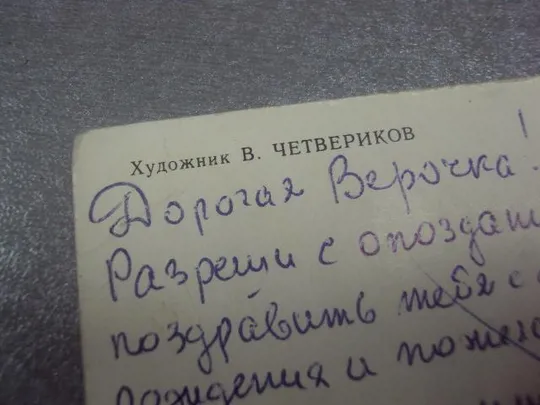 Художник В. ЧЕТВЕРИКОВ
Дорогая Верочка!
Разреши с опоздан
поздравить тебя с
рождения и поже